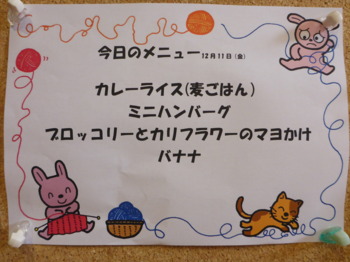 今日のメニュー 12月11日(金)
カレーライス(麦ごはん)
ミニハンバーグ
ブロッコリーとカリフラワーのマヨかけ
バナナ